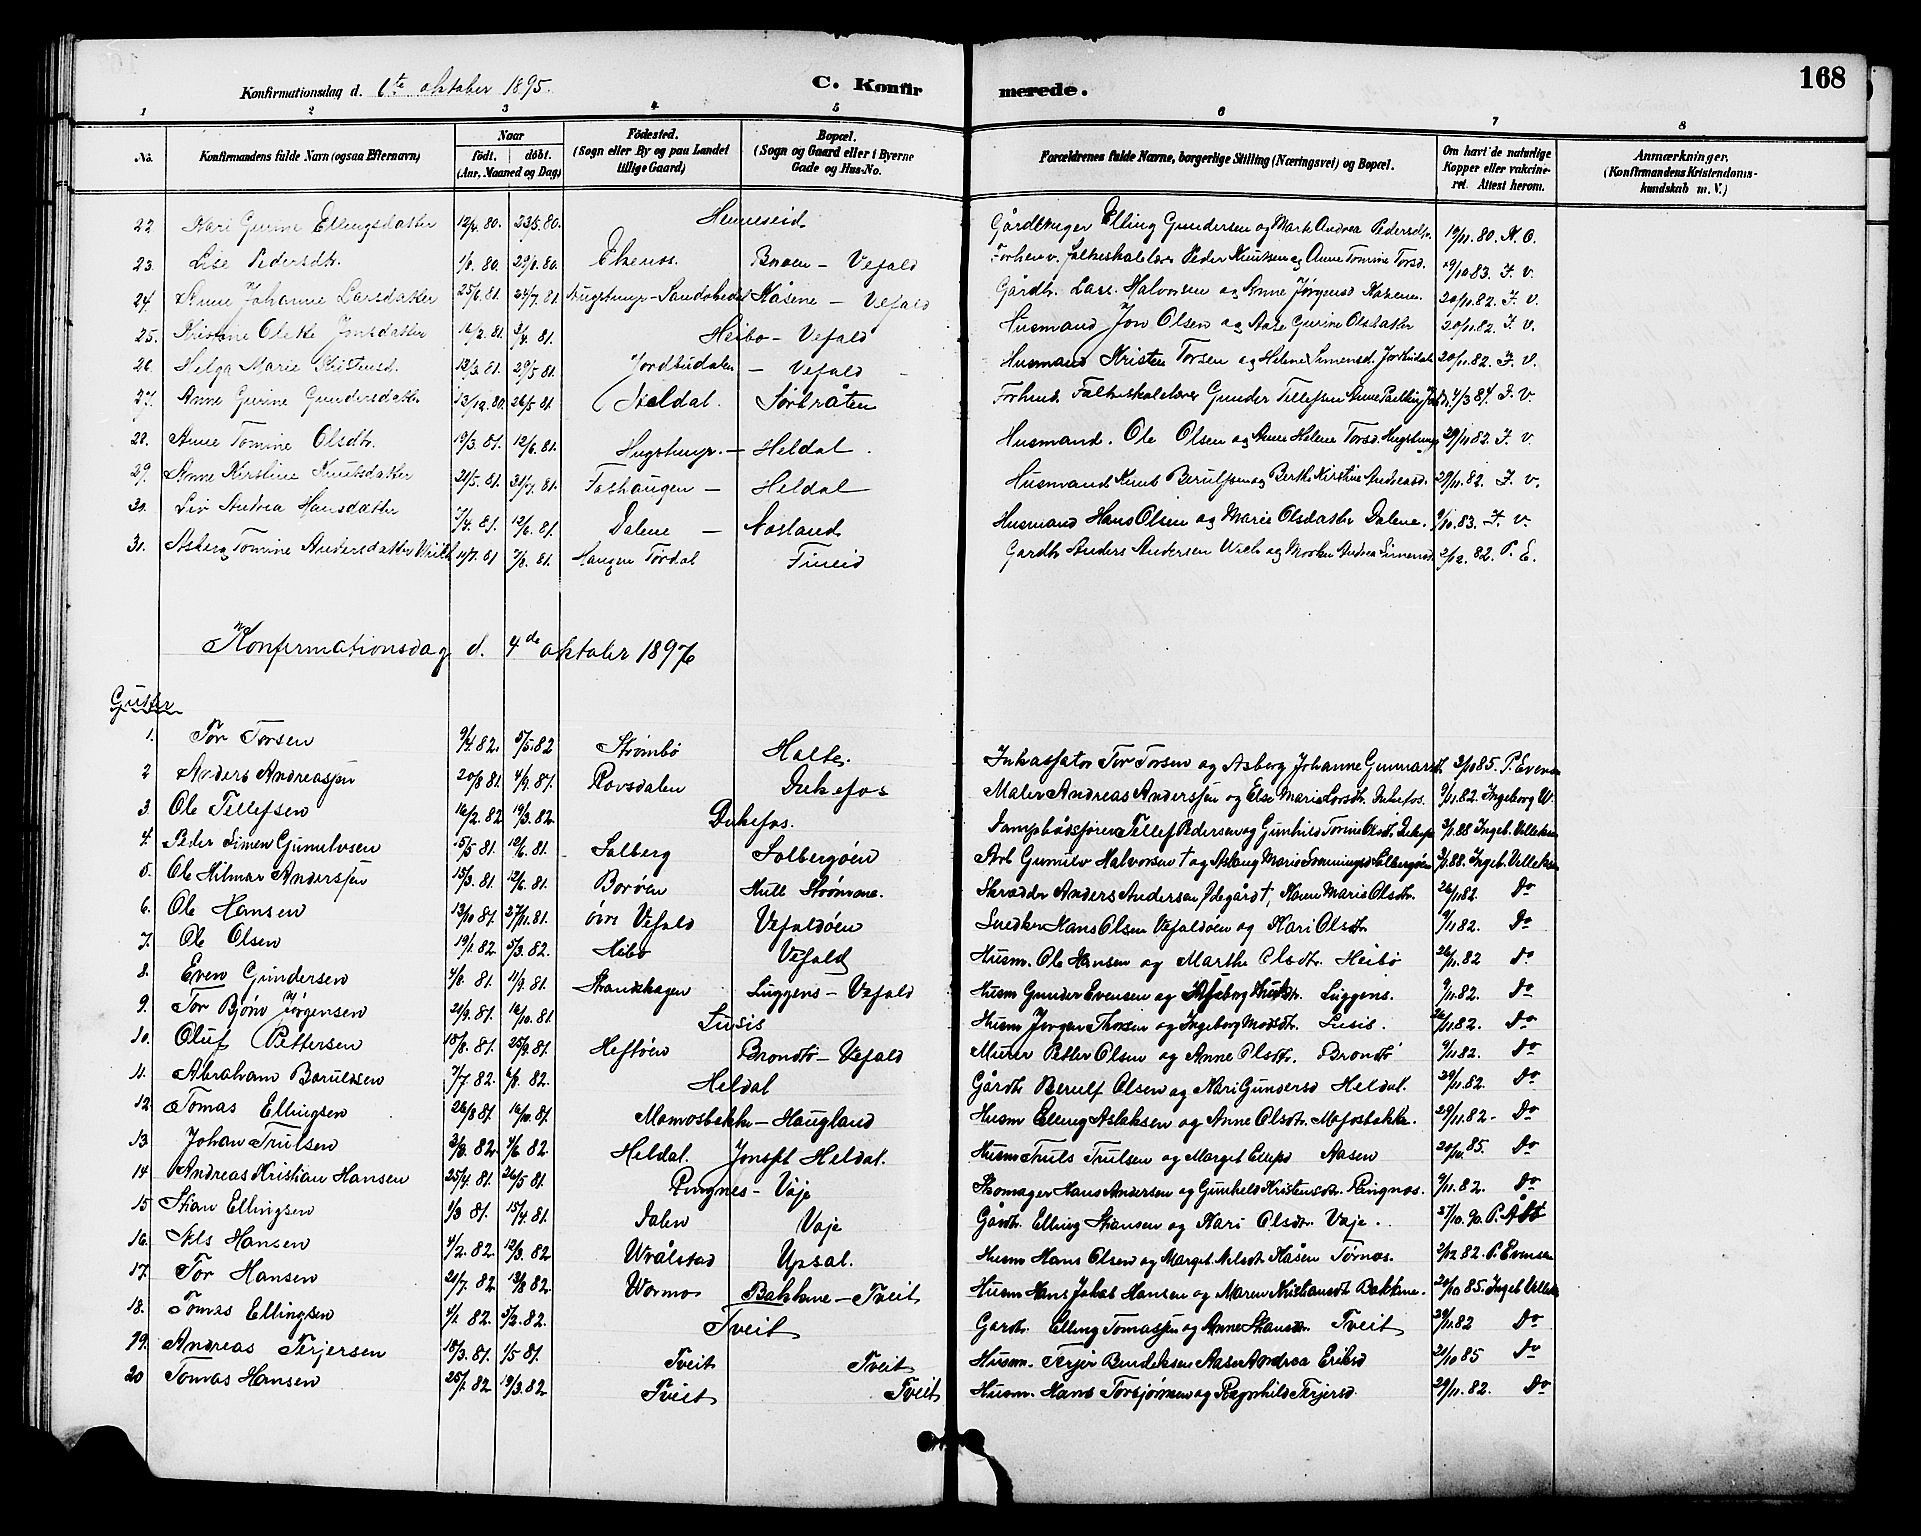 168
Konfirmationsdag d. 6te oktober 1895. C. Konfirmerede.
1 2 3 4 5 6 7 8
No. Konfirmandens fulde Navn (ogsaa Efternavn) Naar födt. döbt. (Aar, Maaned og Dag) Födested. (Sogn eller By og paa Landet tillige Gaard) Bopæl. (Sogn og Gaard eller i Byerne Gade og Hus-No. Forældrenes fulde Navne, borgerlige Stilling (Næringsvei) og Bopæl. Om havt de naturlige Kopper eller vakcineret. Attest herom. Anmærkninger. (Konfirmandens Kristendomskundskab m. V.)
22 Kari Gurine Ellingsdatter 12/4. 80. 23/5. 80. Henneseid Gårdbruger Elling Gundersen og Marte Andrea Pedersdtr. 19/11. 80. K. O.
23. Lise Pedersdtr. 1/8. 80. 29/8. 80. Ekenes. Broen – Vefald Forhenv. folkeskolelærer Peder Knutsen og Anne Tomine Torsd. 19/10 83. F. v.
24. Anne Johanne Larsdatter 25/6. 81. 24/7. 81. Hugstmyr – Kåsene – Vefald Gårdbr. Lars Halvorsen og Anne Jørgensd Kåsene. 20/11. 82. F. v.
25. Kristine Oleke Jonsdatter 16/2. 81. 3/4. 81. Heibo – Vefald Husmand Jon Olsen og Aase Gurine Olsdatter 20/11. 82. F. v.
26. Helga Marie Kristensd. 12/3. 81. 29/5 81. Jordbudalen – Vefald Husmand Kristen Torsen og Helene Simensd. 20/11. 82. F. V.
27. Anne Gurine Gundersdatter 13/12. 80. 26/5 81. Heldal. Sørbråten Forhenv. Folkeskolelærer Gunder Tellefsen 4/3 84. F. V.
28. Anne Tomine Olsdtr. 19/3. 81. 12/6. 81. Hugstmyr. – Heldal. Husmand. Ole Olsen og Anne Helene Torsd. Hugstmyr 29/11 82. F. v.
29. Anne Kirstine Knutsdatter 21/5. 81. 31/7. 81. Foshaugen – Heldal Husmand Knut Berulfsen og Berthe Kirstine Andreasd. 29/11. 82. F. v.
30. Liv Andrea Hansdatter 7/4. 81. 12/6. 81. Dalene – Nosland Husmand Hans Olsen og Marie Olsdatter Dalene. 9/10. 83. F. v.
31. Asberg Tomine Andersdatter 11/7. 81 7/8. 81. Haugen Tordal Fineid Gårdbr Anders Andersen og Andrea Simensd 2/12. 82. P. E.
Konfirmationsdag d. 4de oktober 1896
Gutter
1. Tor Torsen 9/4. 82. 5/5. 82 Strømbø Halte. Inkassator Tor Torsen og Asberg Johanne Gunnarsd. 3/10 85. P. Evensen
2 Anders Andreassen 20/8 81. 4/9. 81. Rovsdalen Dukefos Maler Andreas Anderssen og Else Marie Larsdtr. Dukefos. 9/11. 82. Ingeborg W.
3. Ole Tellefsen 16/2. 82 19/3. 82. Dukefos. Dampbådsfører Tellef Pedersen og Gunhild Tomine Olsdtr. Dukefos 3/1 88 Ingeb. Villeksen
4. Peder Simen Gunulvsen 15/5 81. 12/6. 81. Solberg Solbergøen Arb. Gunulv Halvorsen † og Aslaug Marie Solbergøen 3/1. 88. Ingeb. Villeksen
5. Ole Hilmar Anderssen 15/3. 81. 12/6. 81. Borøen Hull Strømene. Skræder Anders Andersen Ødegård †, Karen Marie Olsdtr. 26/11 82. Do
6. Ole Hansen 13/10 81. 27/11. 81. øvre Vefald Vefaldøen Snedker Hans Olsen Vefaldøen og Kari Olsdtr 9/11 82. Do
7. Ole Olsen 19/1. 82. 5/3. 82. Heibø Vefald Husm. Ole Hansen og Marthe Olsdtr. Heibø 26/11. 82 Do
8. Even Gundersen 4/8. 81. 11/9. 81. Strandhagen Luggens – Vefald Husm Gunder Evensen og Ingeborg Luggens. 9/11. 82. Do
9. Tor Bjørn Jørgensen 20/9. 81. 16/10. 81. Lusis Husm Jørgen Thorsen og Ingeborg Lusis. 26/11 82. Do
10. Oluf Pettersen 18/8. 81. 25/9. 81. Heftøen Brondtø – Vefald Murer Petter Olsen og Anne Olsdtr. Brondtø 9/11 82. Do
11. Abraham Barulvsen 7/7. 82. 6/8. 82. Heldal Gårdbr Berulf Olsen og Kari Gundersd Heldal. 29/11. 82. Do
12. Tomas Ellingsen 26/8 81. 16/10. 81. Mamosbakke – Haugland Husm Elling Aslaksen og Anne Olsdtr. 29/11. 82. Do
13. Johan Trulsen 3/3. 82. 4/6 82. Heldal Jonspl. Heldal. Husm Truls Trulsen og Marget Aasen 20/10. 85. Do
14. Andreas Kristian Hansen 25/4. 81. 26/5 81. Ringnes – Vøje Skomager Hans Andersen og Gunhild Kristensdtr. Ringnes. 9/11. 82. Do
15 Stian Ellingsen 1/3 81. 15/4. 81. Dalen Vøje Gårdbr. Elling Stiansen og Kari Olsdtr. Vøje. 27/10. 90. P. Åbø
16. Nils Hansen 4/2. 82. 12/3. 82 Wrålstad Upsal. Husm Hans Olsen og Marget Nilsdtr Kåsen Tørnes. 2/12 82. P. Evensen
17. Tor Hansen 20/7. 82 13/8 82. Wormo Bakkene – Tveit Husm Hans Jakob Hansen og Maren Kristiansdtr Bakkene. 20/10 85. Ingeb. Villeksen
18. Tomas Ellingsen 4/1 82. 5/2. 82. Tveit Gårdbr. Elling Tomassen og Anne Stiansdtr. Tveit 29/11. 82 Do
19. Andreas Terjersen 18/3. 81. 1/5 81. Tveit Tveit Husm. Terjer Bendiksen Aase Andrea Eriksd 21/10 85 Do
20 Tomas Hansen 25/1 82 19/3. 82 Tveit Tveit Husm. Hans Torbjørnsen og Ragnhild Terjersd. 29/11. 82. Do